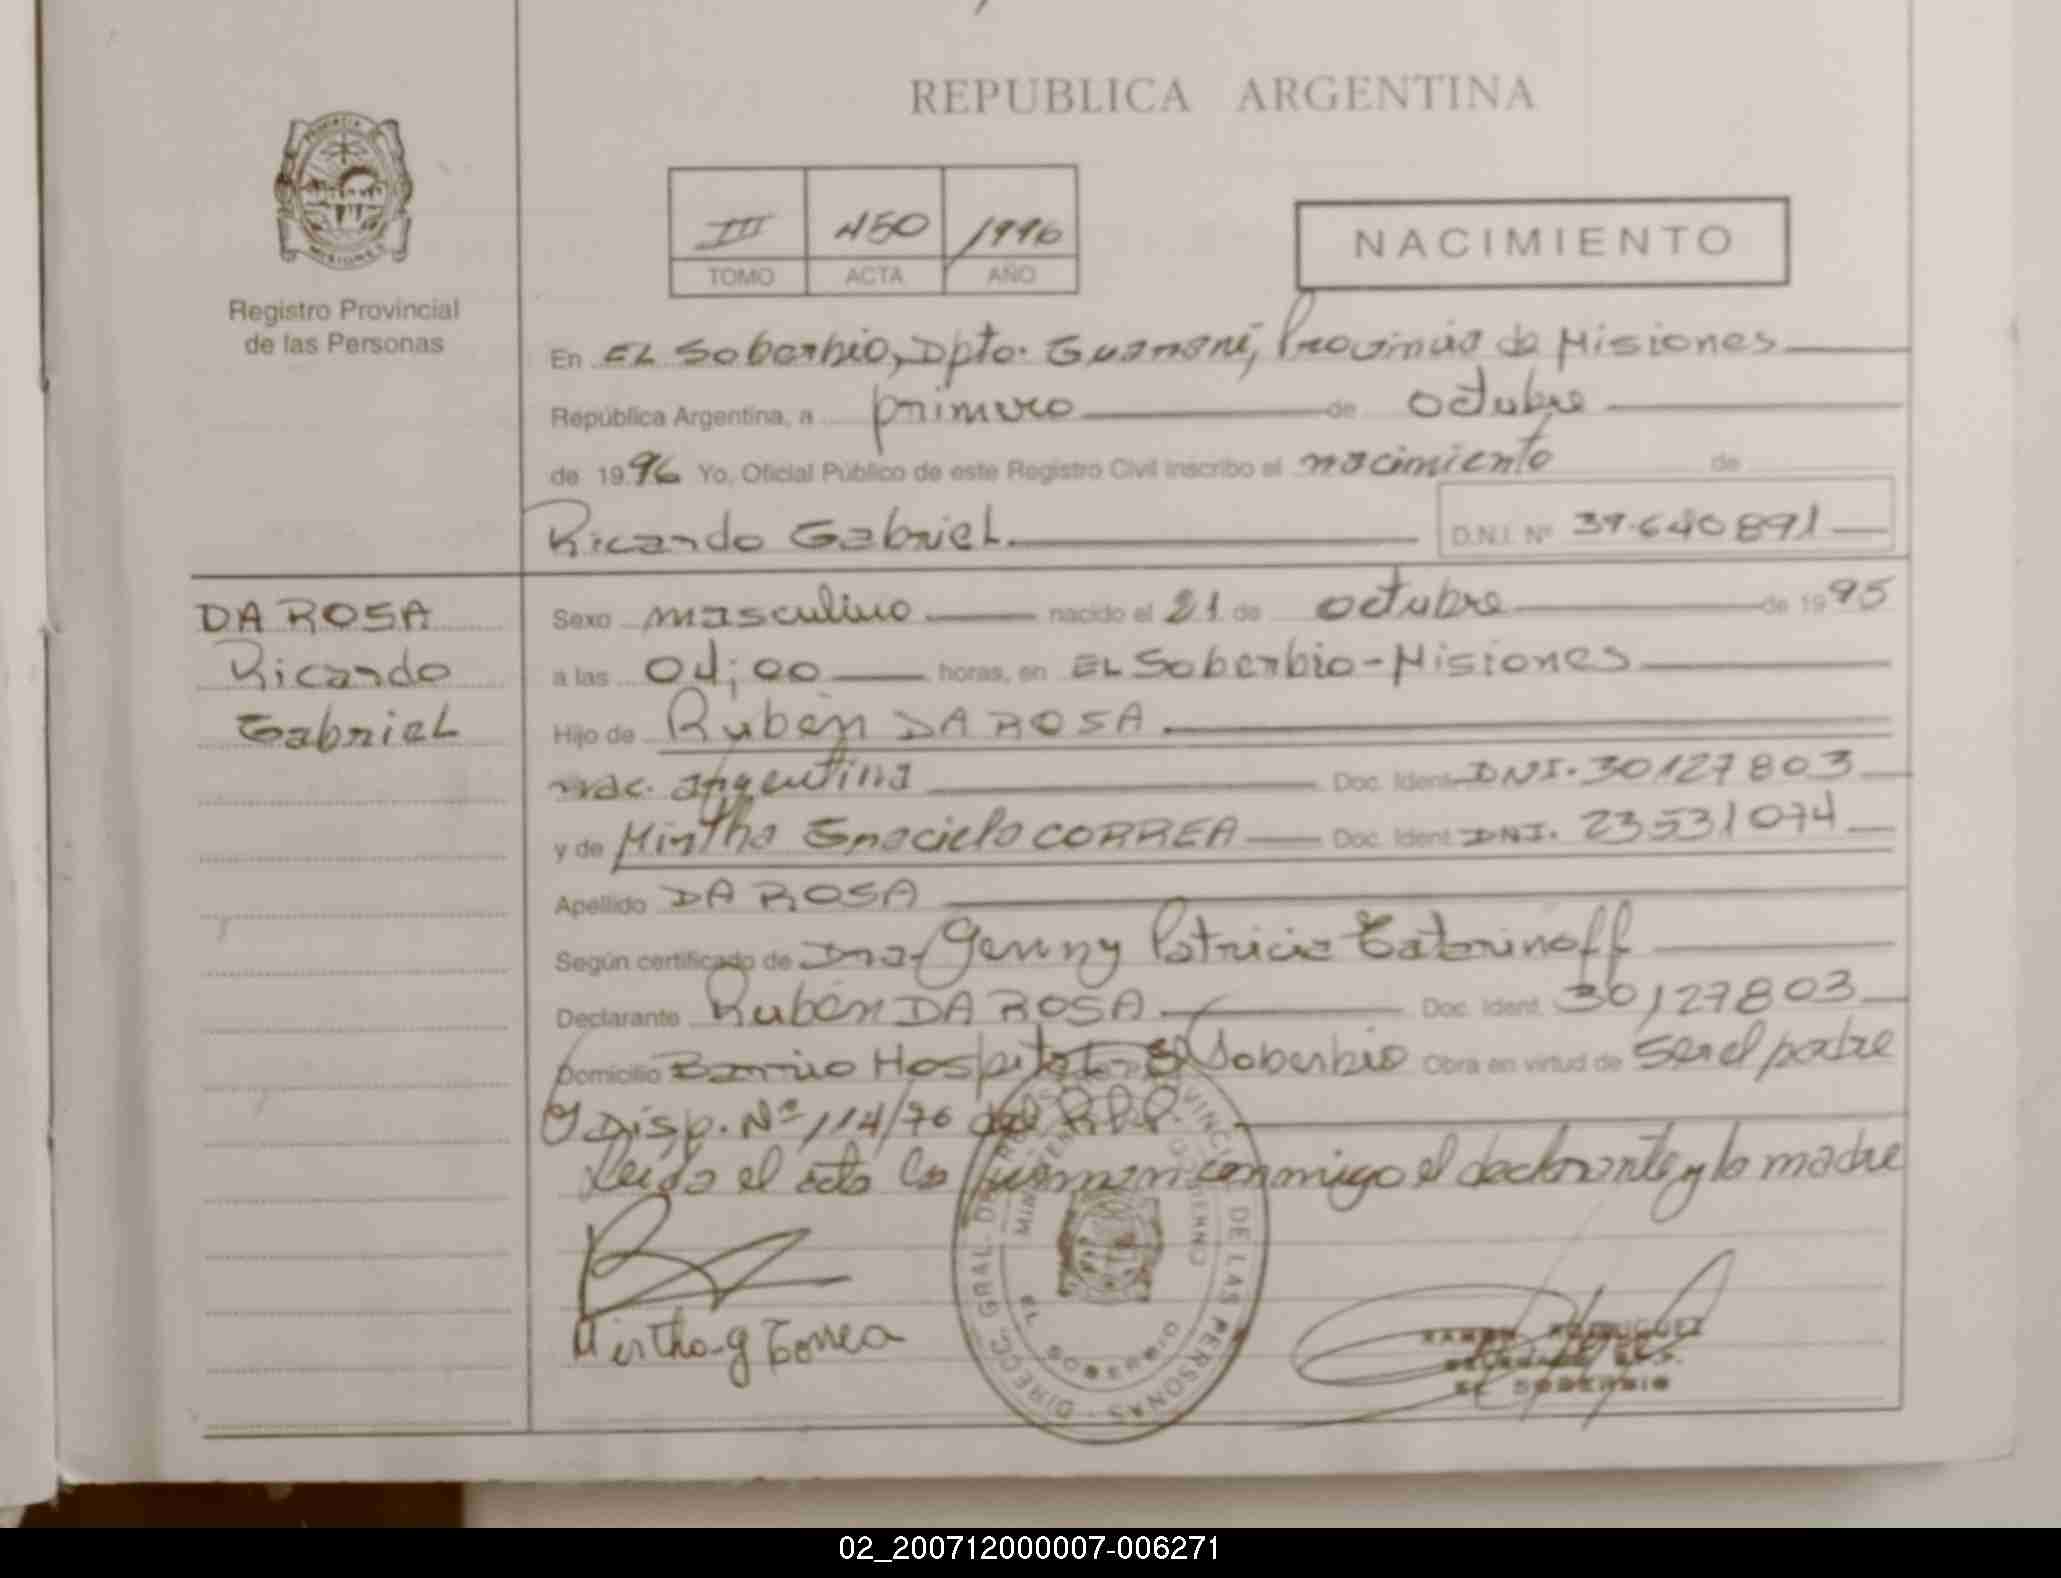 REPUBLICA ARGENTINA
PROVINCIA DE MISIONES
Registro Provincial
de las Personas
III 450 1996
TOMO ACTA AÑO
NACIMIENTO
En EL Soberbio, Dpto. Guaraní, Provincia de Misiones
República Argentina, a primero de octubre
de 1996 Yo, Oficial Público de este Registro Civil inscribo el nacimiento de
Ricardo Gabriel. D.N.I. Nº 39.640891
DA ROSA
Ricardo
Gabriel
Sexo masculino nacido el 21 de octubre de 1995
a las 04;00 horas, en EL Soberbio-Misiones
Hijo de Rubén DA ROSA
nac. argentina Doc. Ident. DNI. 30127803
y de Mirtha Graciela CORREA Doc. Ident. DNI. 23531074
Apellido DA ROSA
Según certificado de Dra. Genny Patricia
Declarante Rubén DA ROSA Doc. Ident. 30127803
Domicilio Barrio Hospital-El Soberbio Obra en virtud de ser el padre
y Disp. Nº 114/76 del R.P.P.
Leída el acta la firman conmigo el declarante y la madre
Mirtha g Correa
DIRECC. GRAL. DE LAS PERSONAS
EL SOBERBIO
RAMON RODRIGUEZ
EL SOBERBIO
02_200712000007-006271